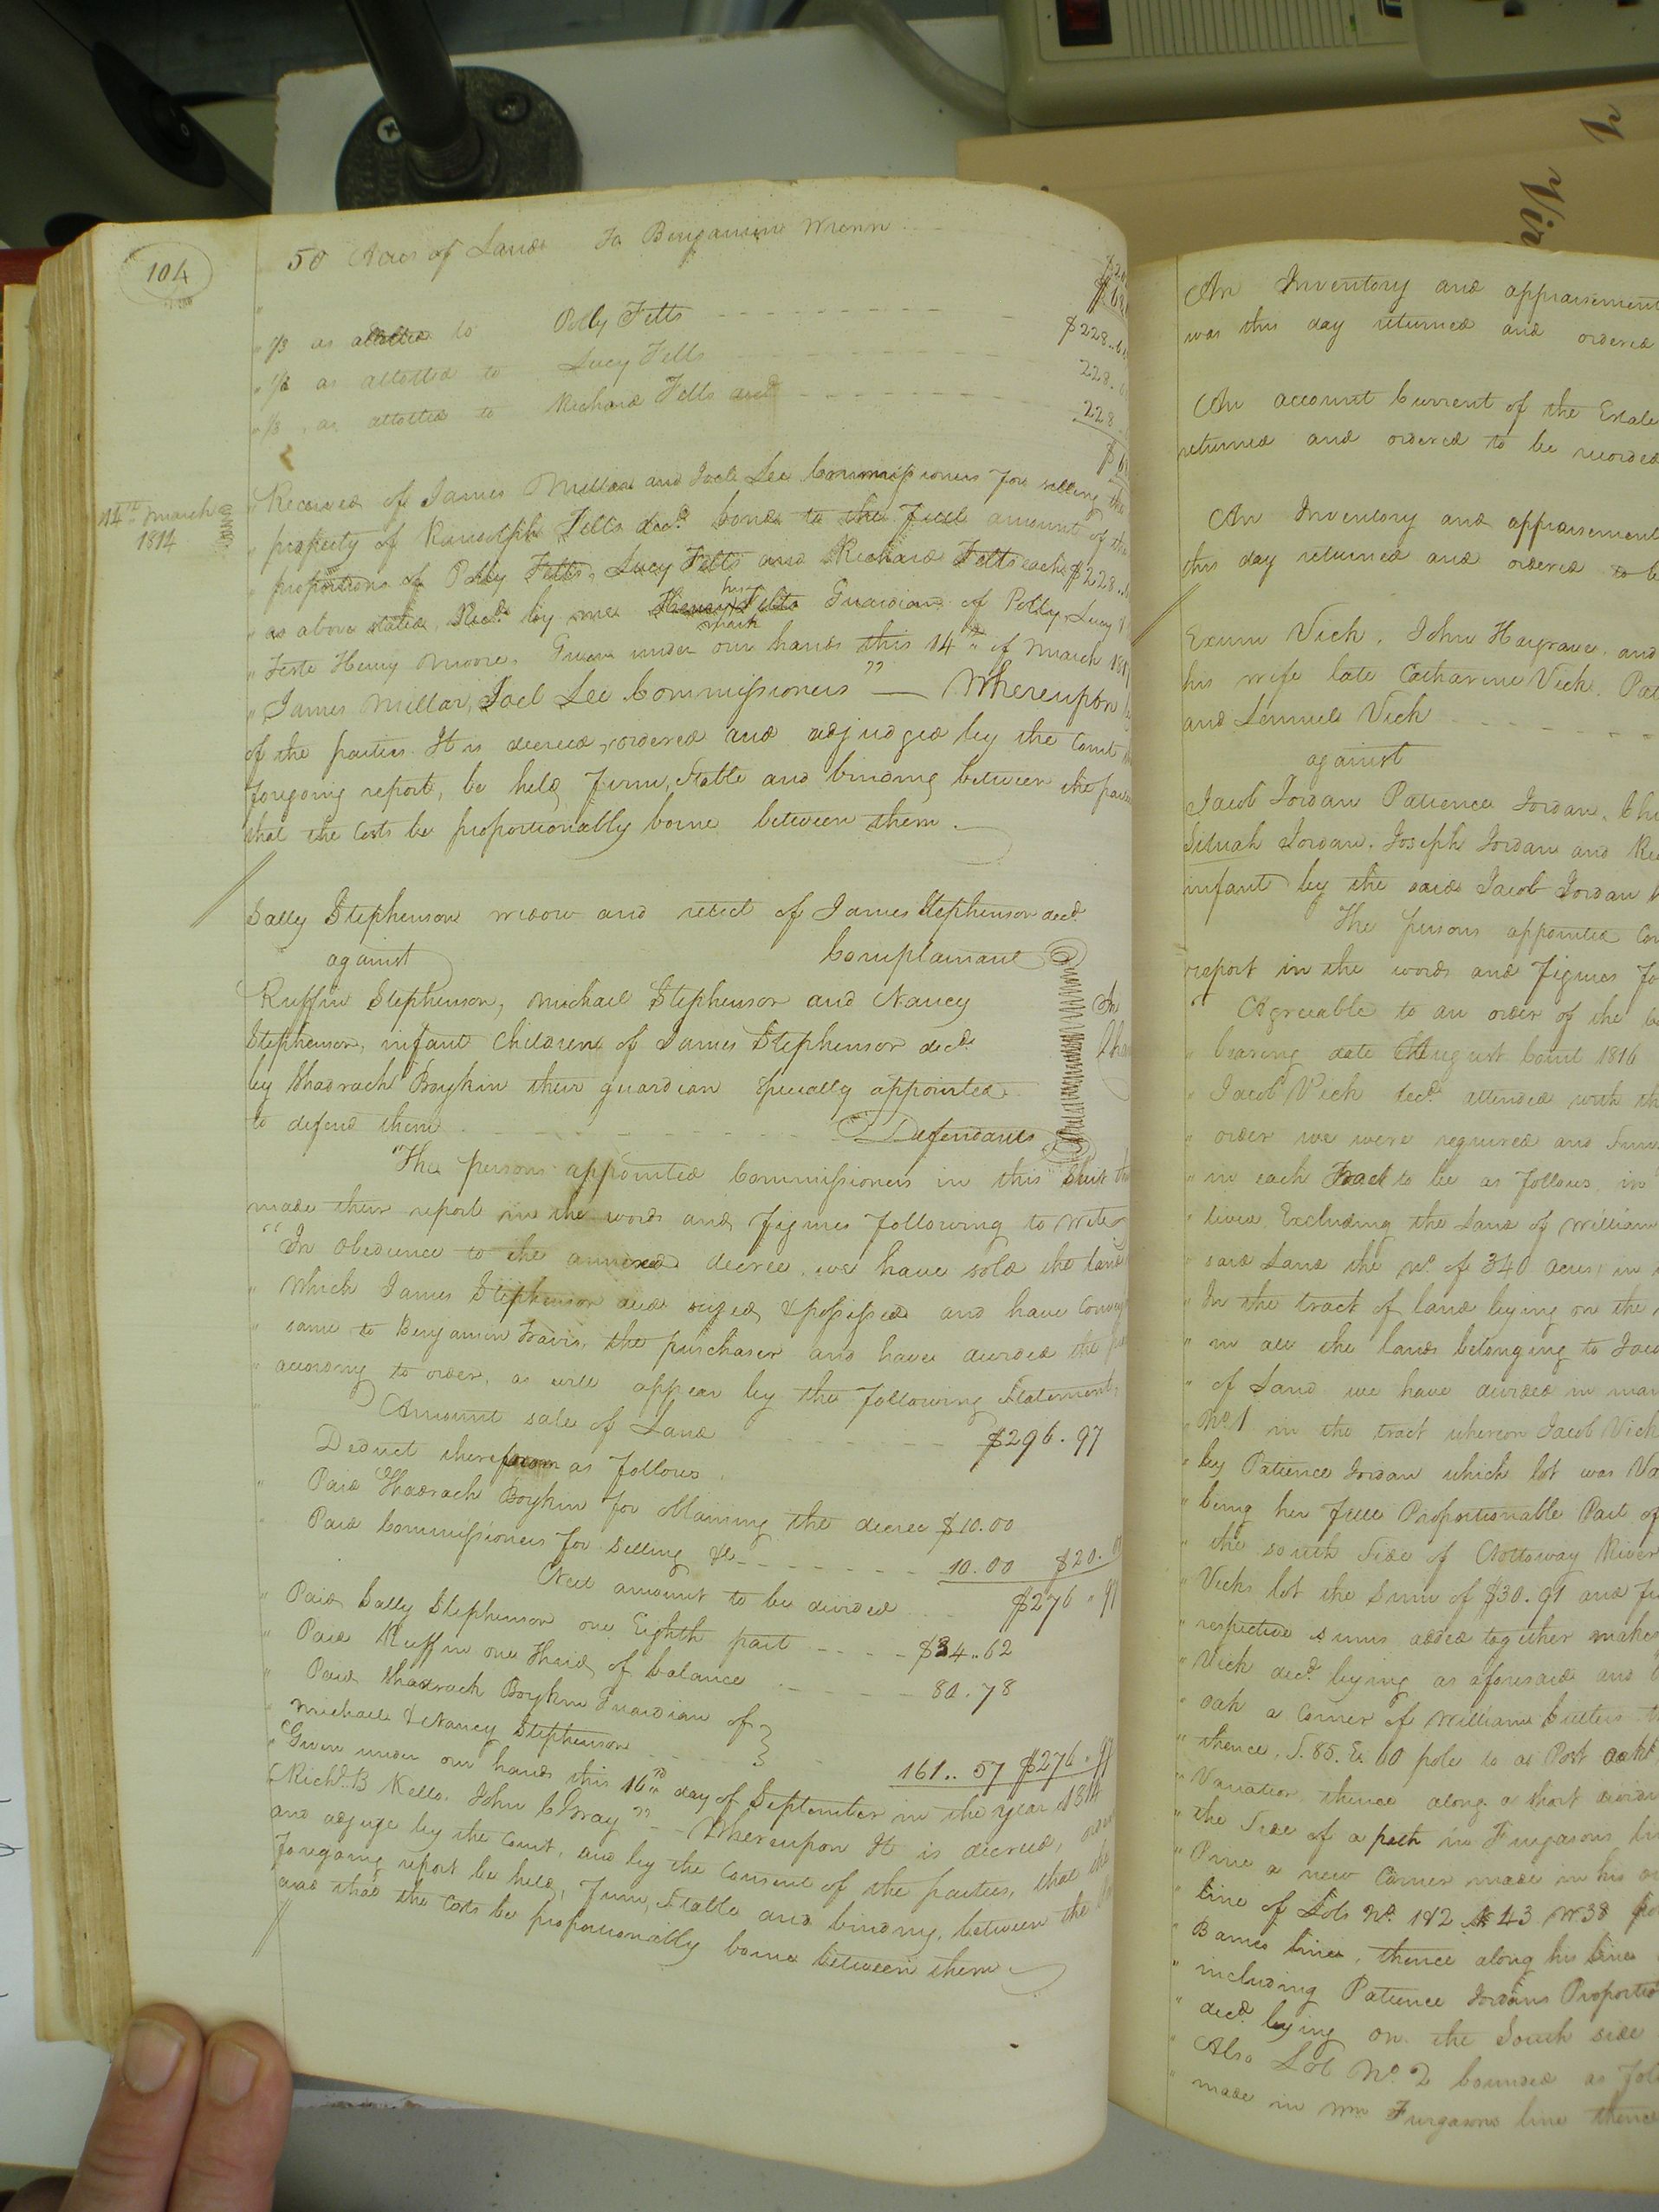 104
50 Acres of Land To Benjamine Wrenn
" 1/3 as allotted to Polly Felts $228..
" 1/3 as allotted to Lucy Felts 228.
" 1/3 as allotted to Richard Felts decd 228
14th March
1814
"Received of James Millar and Joel Lee Commissioners for selling the
" property of Randolph Felts decd. bonds to the full amount of the
" proportions of Polly Felts, Lucy Felts and Richard Felts each $228..
" as above stated, Recd. by me Henry his mark Felts Guardian of Polly, Lucy
" Teste Henry Moore. Given under our hands this 14th of March
" James Millar, Joel Lee Commissioners" — Whereupon
of the parties It is decreed, ordered and adjudged by the Court
foregoing report, be held firm, Stable and binding between the
that the Costs be proportionably borne between them.
Sally Stephenson widow and relict of James Stephenson decd.
Complainant
against
Ruffin Stephenson, Michael Stephenson and Nancy
Stephenson, infant Children of James Stephenson decd.
by Shadrach Boykin their guardian specially appointed
to defend them Defendants
"The persons appointed Commissioners in this Suit
made their report in the words and figures following to wit
"In Obedience to the annexed decree, we have sold the land
" which James Stephenson died seized & possessed and have
" same to Benjamin Travis, the purchaser and have divided the
" according to order, as will appear by the following Statement,
" Amount sale of Land $296.97
Deduct therefrom as follows
" Paid Shadrach Boykin for obtaining the decree $10.00
" Paid Commissioners for Selling &c 10.00 $20.
Neet amount to be divided $276.97
" Paid Sally Stephenson one Eighth part $34..62
" Paid Ruffin one third of balance 80.78
" Paid Shadrach Boykin Guardian of
" Michael & Nancy Stephenson 161..57 $276.97
"Given under our hands this 16th day of September in the year 1814
Richd. B Kello. John C Gray" - Whereupon It is decreed,
and adjuge by the Court, and by the Consent of the parties, that the
foregoing report be held, firm, Stable and binding, between the
and that the Costs be proportionally borne between them
An Inventory and appraisement
was this day returned and ordered
An account Current of the Estate
returned and ordered to be recorded
An Inventory and appraisement
this day returned and ordered to be
Exum Vick, John Hargrave, and
his wife late Catharine Vick, Pat
and Lemuel Vick
against
Jacob Jordan Patience Jordan,
Jordan, Joseph Jordan and
infant by the said Jacob Jordan
The persons appointed Com
report in the words and figures fo
" Agreeable to an order of the
" bearing date August Court 1816
" Jacob Vick decd. attended with the
" order we were required and
" in each Tract to be as follows, in
" lived. Excluding the Land of William
" said Land the No. of 340 acres, in
" In the tract of land lying on the
" in all the lands belonging to Jac
" of Land we have divided in man
" No. 1 in the tract whereon Jacob Vick
" by Patience Jordan which lot was Va
" being her full Proportionable Part of
" the south Side of Nottoway River
" Vicks lot the Sum of $30.91 and
" respective sums added together makes
" Vick decd. lying as aforesaid and
" oak a Corner of William
" thence, S. 85. E. 60 pole to a Post oak
" Valuation, thence along a
" the Side of a path in Furgasons
" Pine a new Corner made in his
" line of Lots No. 1 & 2 N 43 W 38
" Barnes line, thence along his line
" including Patience Jordans Proportio
" decd. lying on the South side
" Also Lot No. 2 bounded as fol
" made in Wm Furgasons line thence